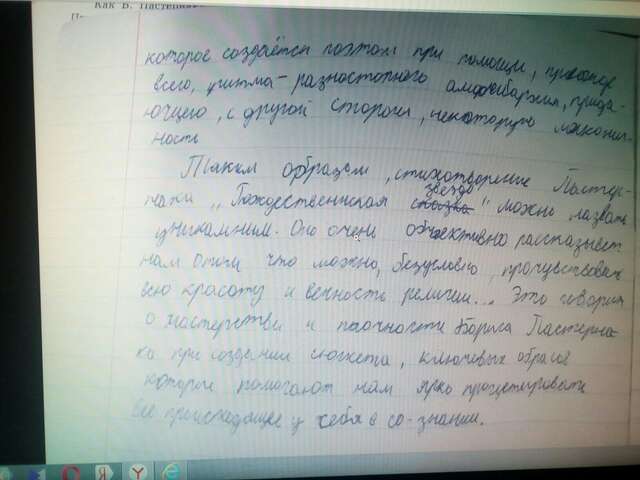 Как Б. Пастернак
которое создаётся поэтом при помощи, прежде
всего, ритма - разностопного амфибрахия, прида-
ющего, с другой стороны, некоторую лаконич-
ность
Таким образом, стихотворение Пастер-
нака „Рождественская сказка" можно назвать
звезда
уникальным. Оно очень объективно рассказывает
нам о том что можно, безусловно, прочувствовать
всю красоту и вечность религии... Это говорит
о мастерстве и Бориса Пастерна-
ка при создании сюжета, ключевых образов
которые помогают нам ярко
все происходящее у себя в со-знании.